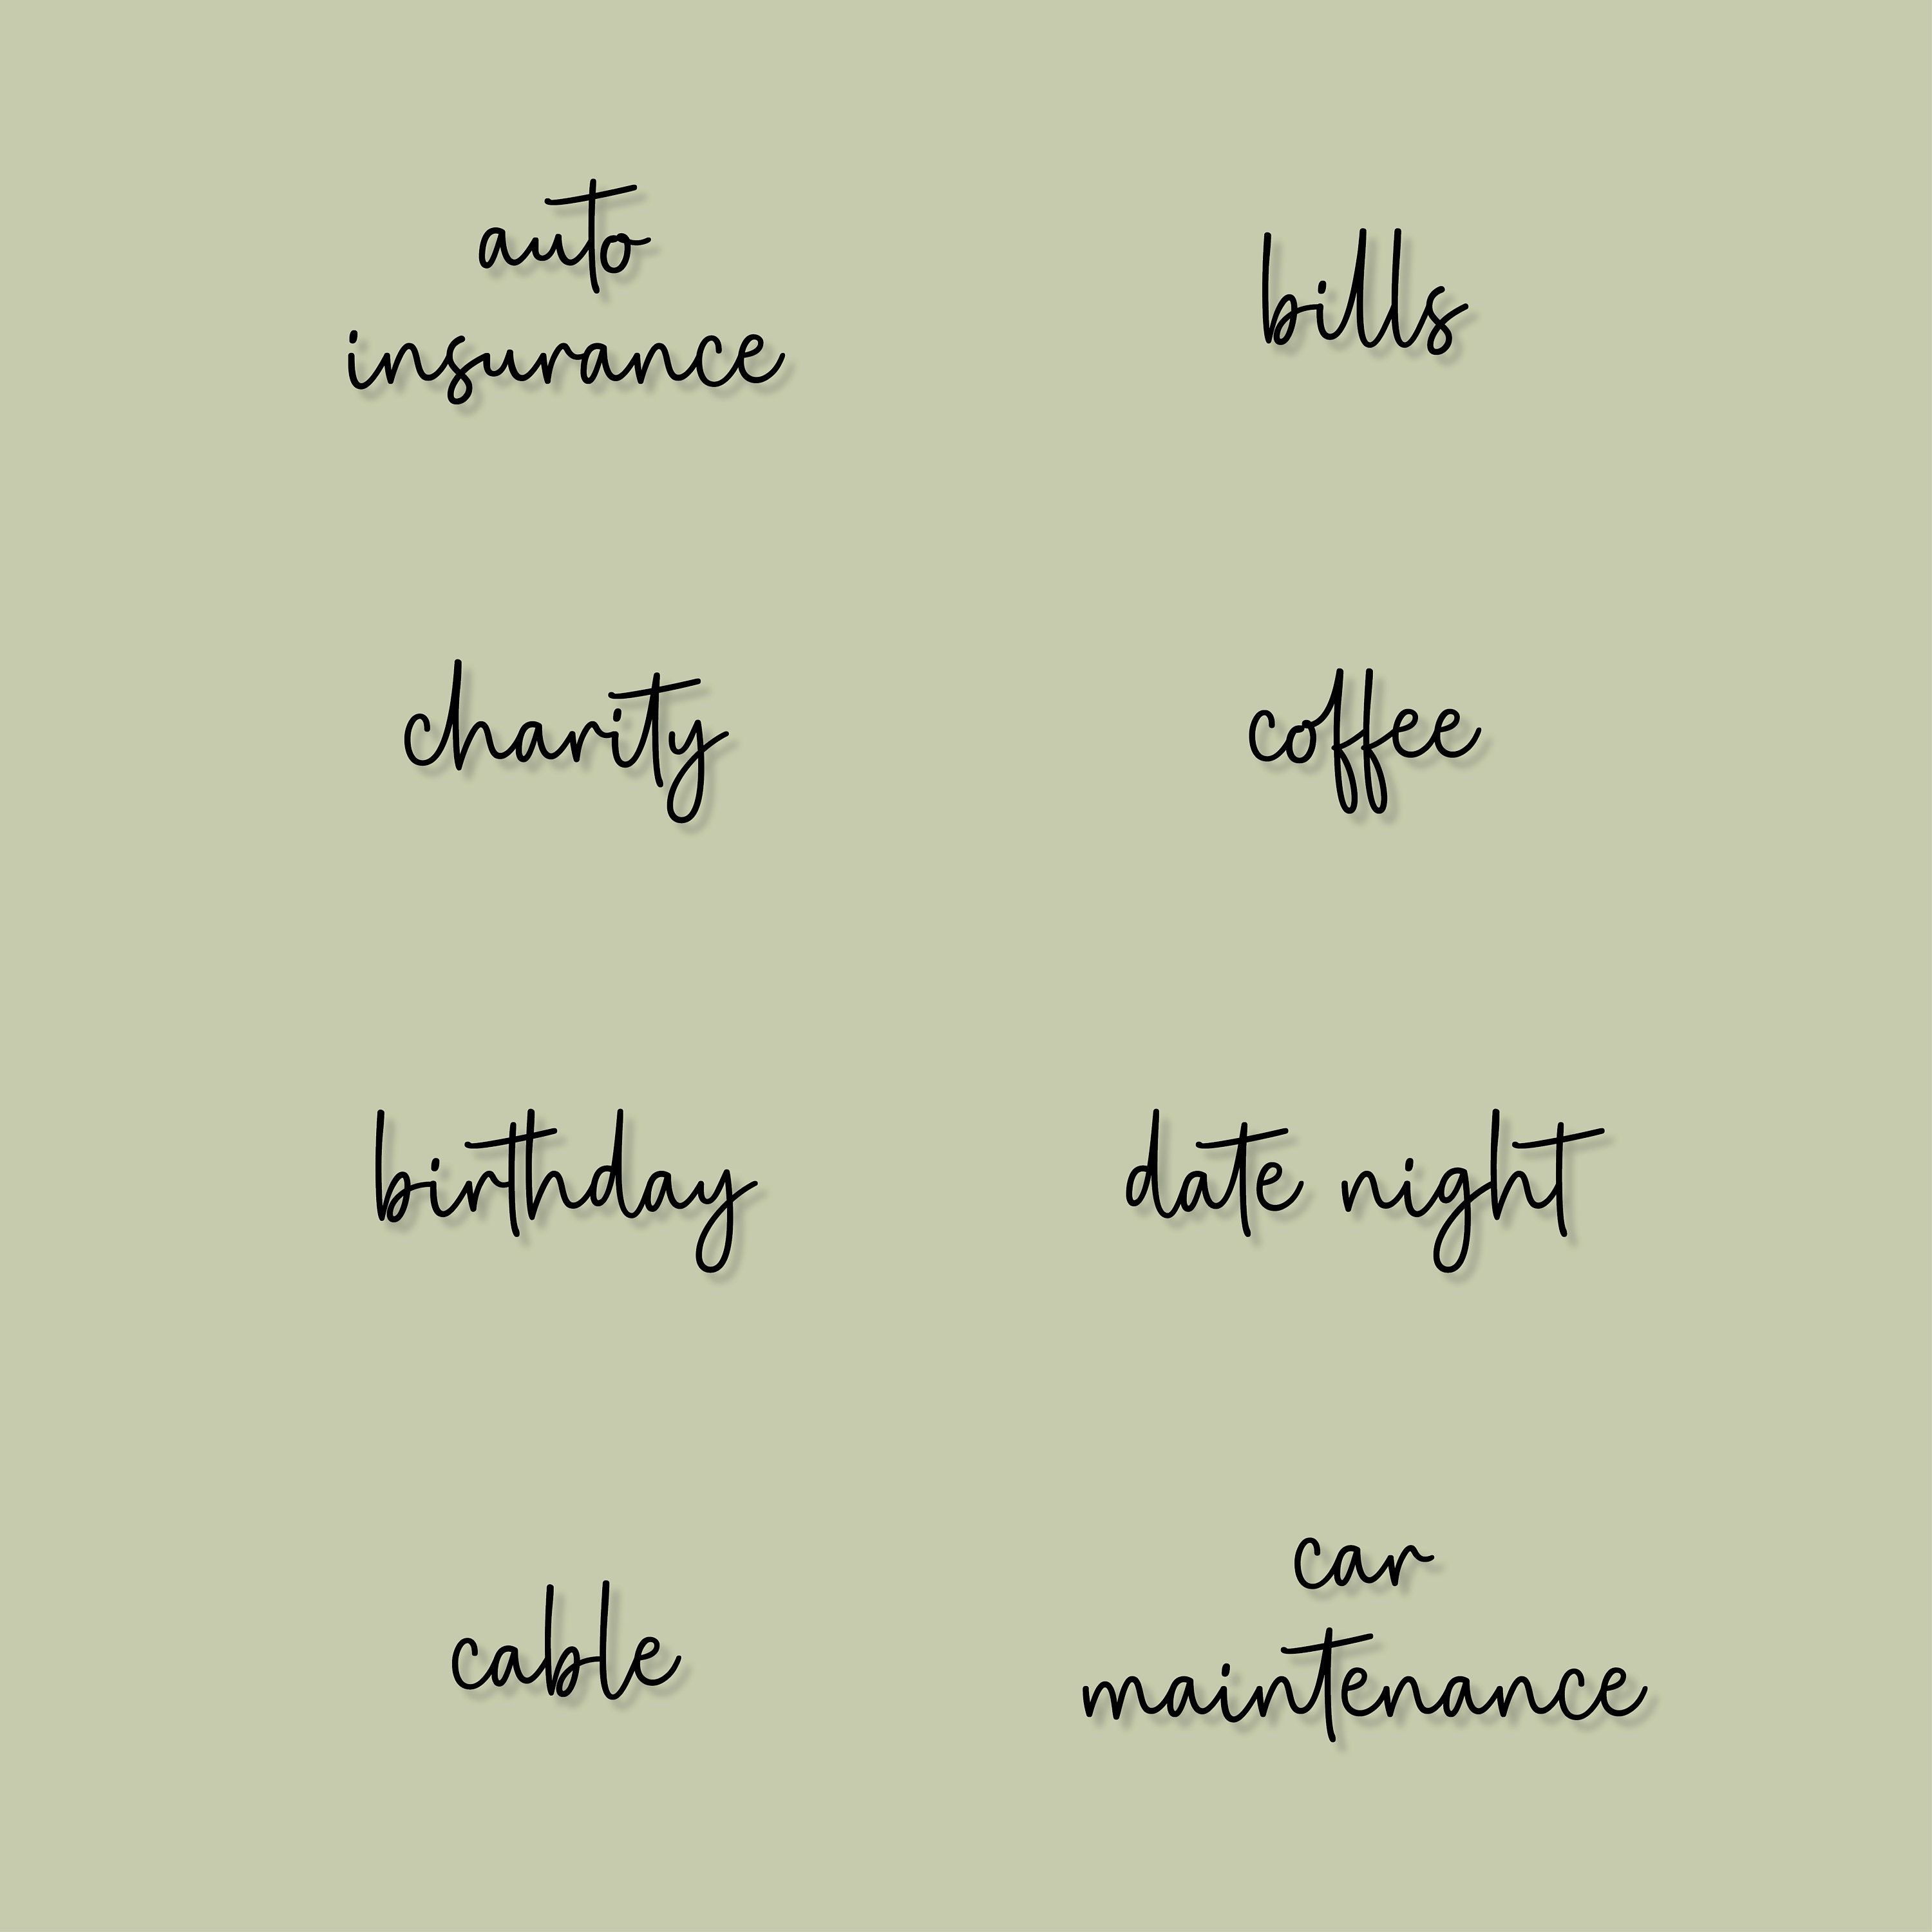 auto
insurance
bills
charity
coffee
birthday
date night
cable
car
maintenance